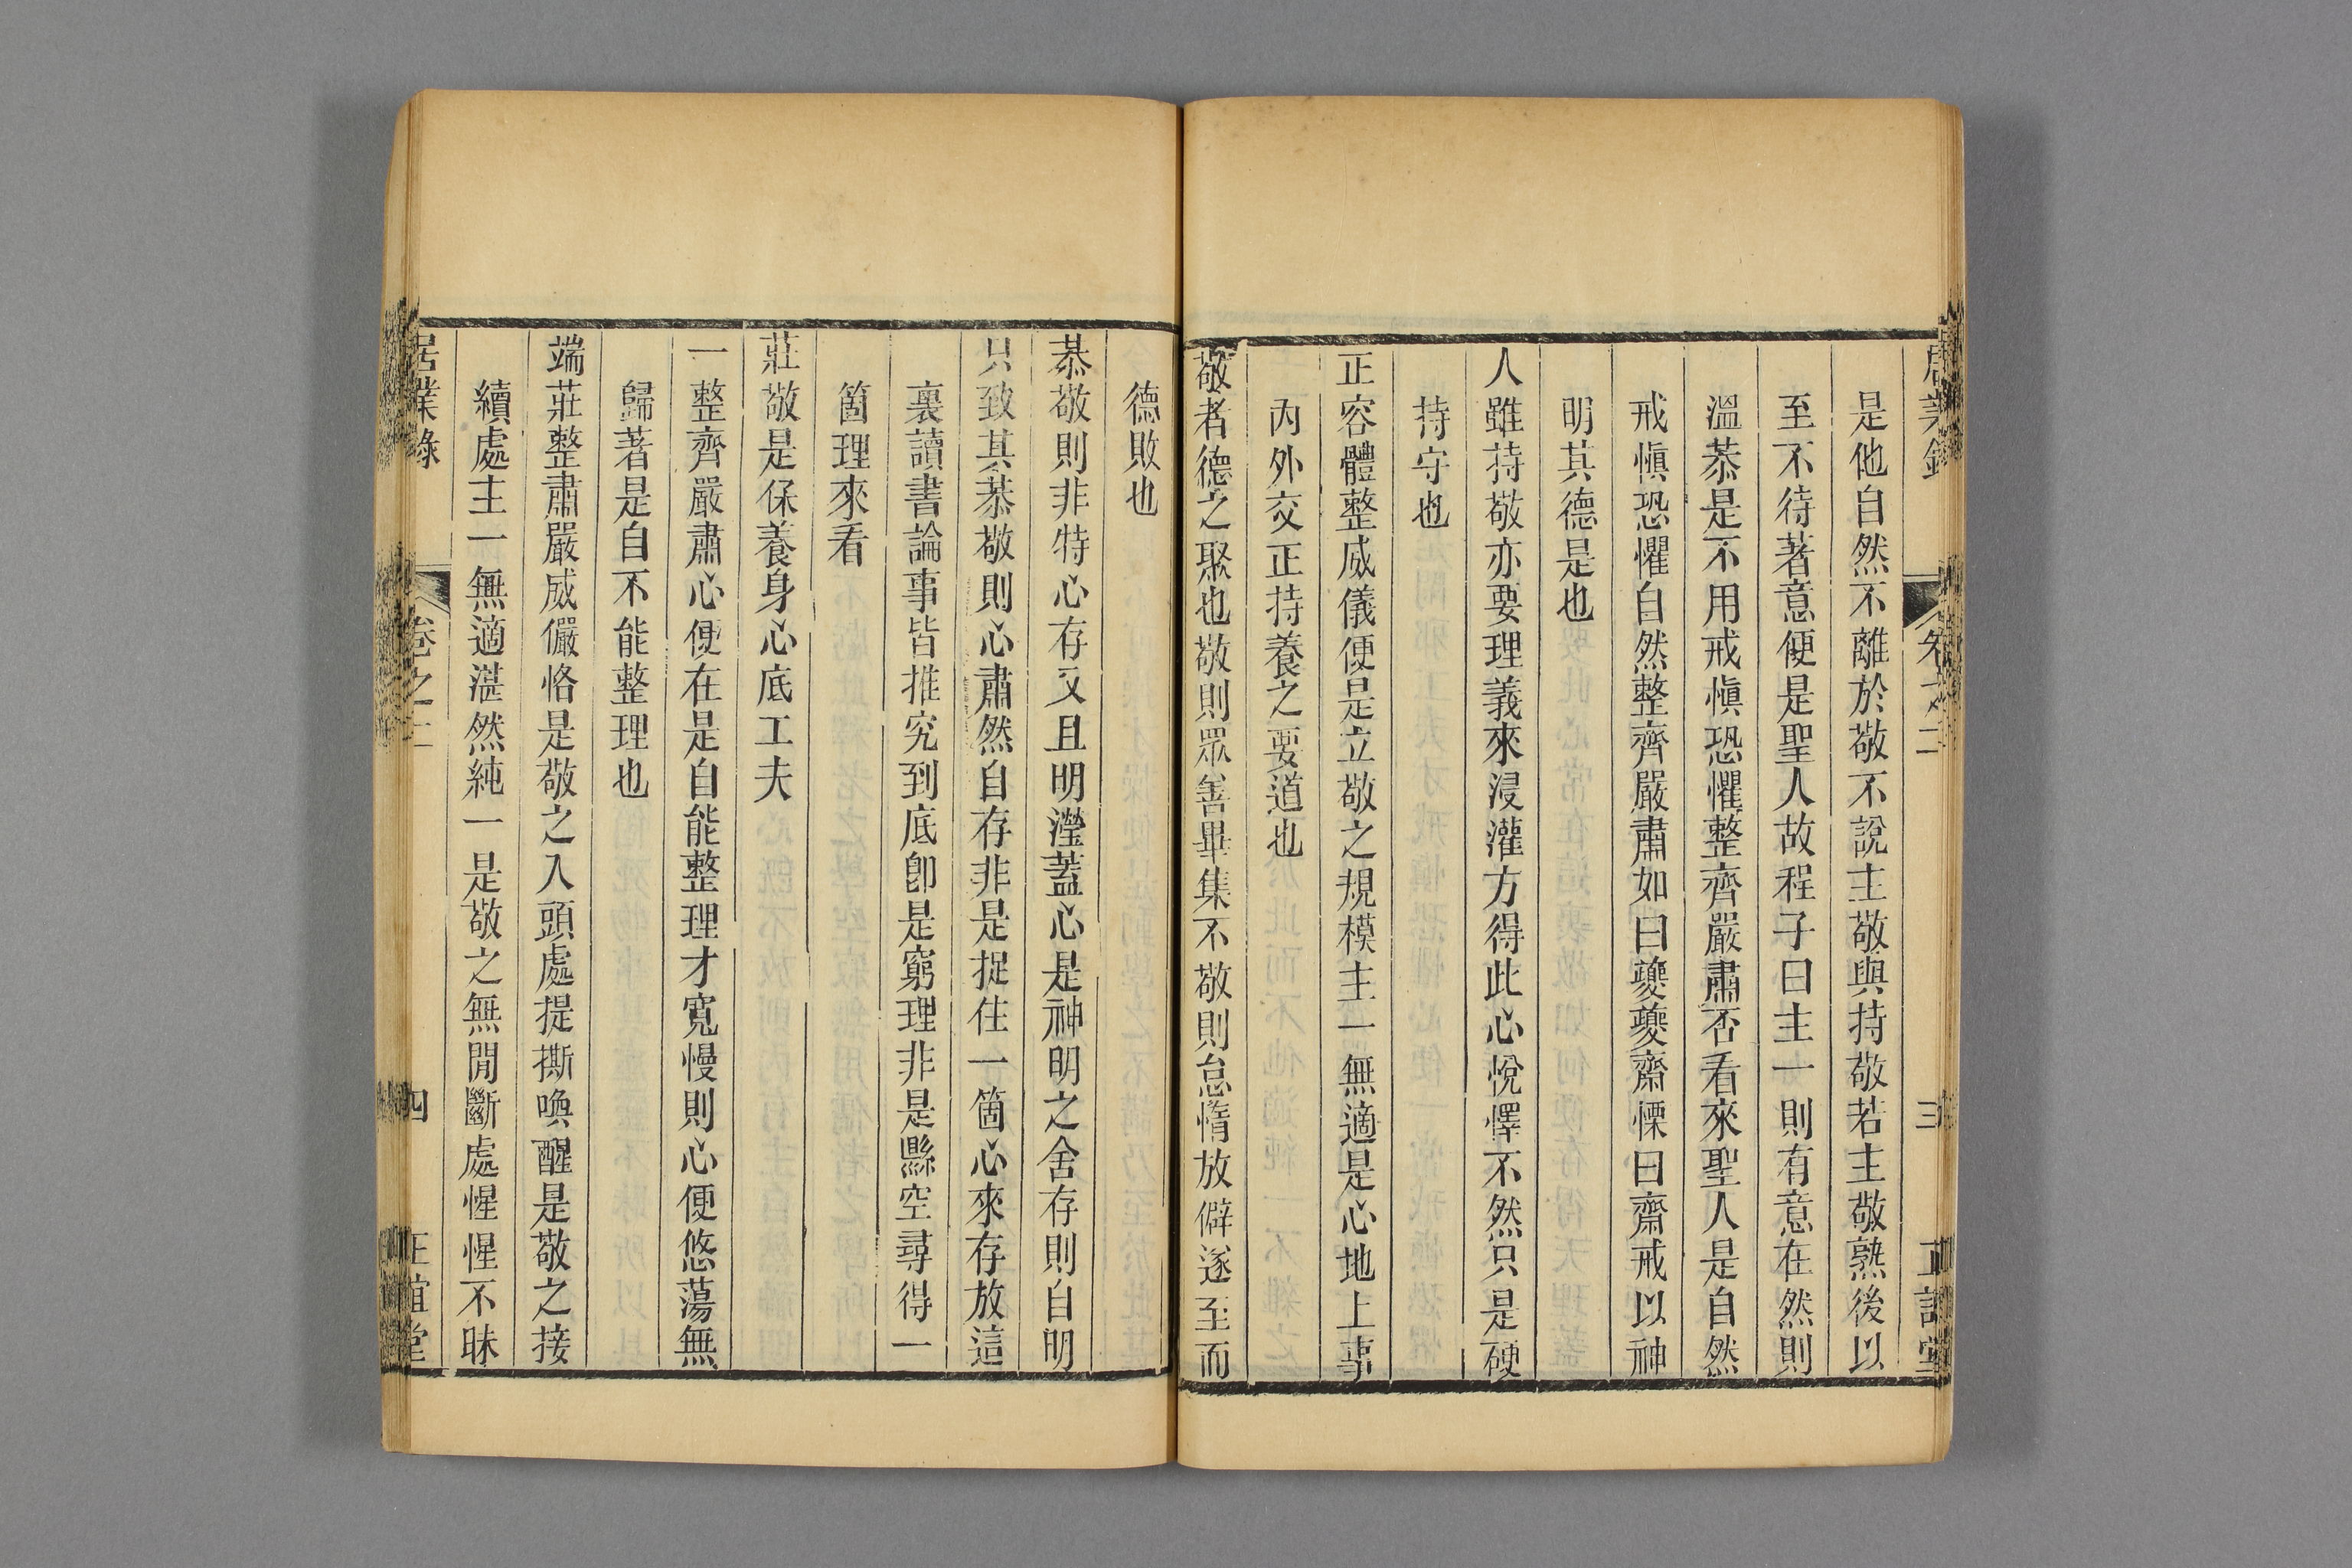 居業錄 卷之二 三 正誼堂
是他自然不離於敬不說主敬與持敬若主敬熟後以
至不待著意便是聖人故程子曰主一則有意在然則
溫恭是不用戒愼恐懼整齊嚴肅否看來聖人是自然
戒愼恐懼自然整齊嚴肅如曰夔夔齋慄曰齋戒以神
明其德是也
人雖持敬亦要理義來浸灌方得此心悅懌不然只是硬
持守也
正容體整威儀便是立敬之規模主一無適是心地上事
內外交正持養之要道也
敬者德之聚也敬則眾善畢集不敬則怠惰放僻遂至而
德敗也
恭敬則非特心存又且明瀅蓋心是神明之舍存則自明
只致其恭敬則心肅然自存非是捉住一箇心來存放這
裏讀書論事皆推究到底卽是窮理非是縣空尋得一
箇理來看
莊敬是保養身心底工夫
一整齊嚴肅心便在是自能整理才寬慢則心便悠蕩無
歸著是自不能整理也
端莊整肅嚴威儼恪是敬之入頭處提撕喚醒是敬之接
續處主一無適湛然純一是敬之無閒斷處惺惺不昧
居業錄 卷之二 四 正誼堂